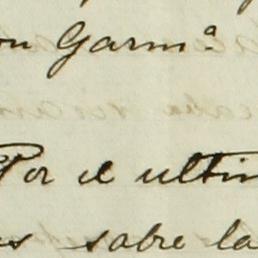 on Garmª
Por el ultim
es sobre la